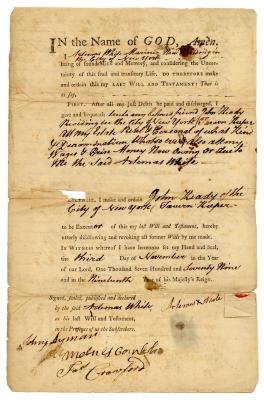 IN the Name of GOD, Amen.
I Artemas White Mariner Now Residing in
the City of New York
being of sound Mind and Memory, and considering the Uncertainty
of this frail and transitory Life, DO THEREFORE make
and ordain this my LAST WILL AND TESTAMENT: That is
to say,
FIRST. After all my just Debts be paid and discharged, I
give and bequeath unto my beloved friend John Keady
Residing in the City of New York Tavern Keeper
All my Estate Real & Personal of what Kind
& Denomination Whatsoever also all my
Wages & Prize Money Now Owing or due to
Me the Said Artemas White
LIKEWISE, I make and ordain John Keady of the
City of New York, Tavern Keeper
to be Executor of this my last Will and Testament, hereby
utterly disallowing and revoking all former Wills by me made.
IN WITNESS whereof I have hereunto set my Hand and Seal,
the third Day of November in the Year
of our Lord, One Thousand Seven Hundred and Seventy Nine
and in the Nineteenth Year of his Majesty's Reign.
Signed, sealed, published and declared
by the said Artemas White Artemas White
as his last Will and Testament,
in the Presence of us the Subscribers.
John Dyman
Crawford